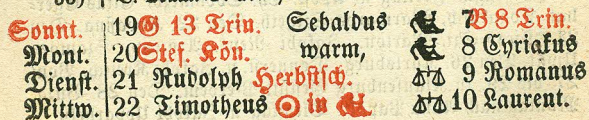 Sonnt. 19 G 13 Trin. Sebaldus 7 B 8 Trin.
Mont. 20 Stef. Kön. warm, 8 Cyriakus
Dienst. 21 Rudolph Herbstsch. 9 Romanus
Mittw. 22 Timotheus ☉ in ♍ 10 Laurent.